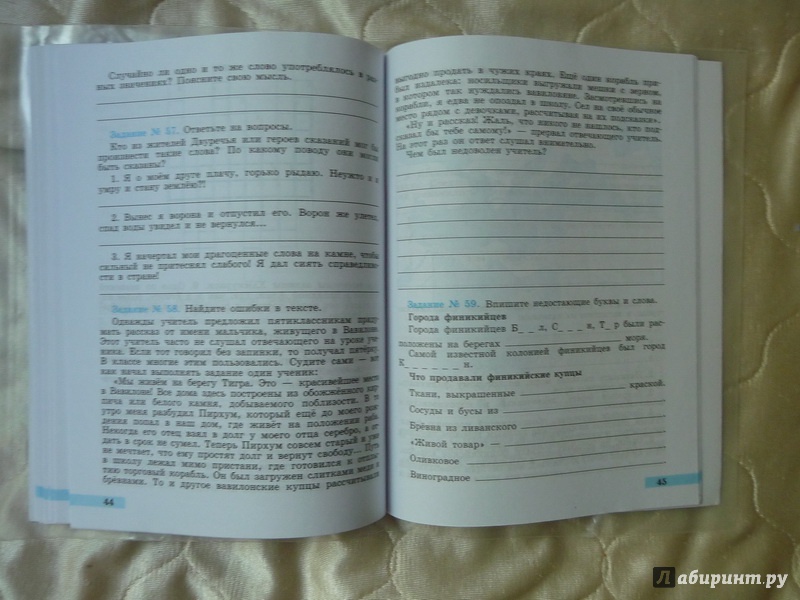 Случайно ли одно и то же слово употреблялось в раз-
ных значениях? Поясните свою мысль.
Задание № 57. Ответьте на вопросы.
Кто из жителей Двуречья или героев сказаний мог бы
произнести такие слова? По какому поводу они могли
быть сказаны?
1. Я о моём друге плачу, горько рыдаю. Неужто и я
умру и стану землёю?!
2. Вынес я ворона и отпустил его. Ворон же улетел,
спад воды увидел и не вернулся...
3. Я начертал мои драгоценные слова на камне, чтобы
сильный не притеснял слабого! Я дал сиять справедливо-
сти в стране!
Задание № 58. Найдите ошибки в тексте.
Однажды учитель предложил пятиклассникам приду-
мать рассказ от имени мальчика, живущего в Вавилоне.
Этот учитель часто не слушал отвечающего на уроке уче-
ника. Если тот говорил без запинки, то получал пятёрку.
В классе многие этим пользовались. Судите сами — вот
как начал выполнять задание один ученик:
«Мы живём на берегу Тигра. Это — красивейшее место
в Вавилоне! Все дома здесь построены из обожжённого кир-
пича или белого камня, добываемого поблизости. В то
утро меня разбудил Пирхум, который ещё до моего рож-
дения попал в наш дом, где живёт на положении раба.
Некогда его отец взял в долг у моего отца серебро, а от-
дать в срок не сумел. Теперь Пирхум совсем старый и уже
не мечтает, что ему простят долг и вернут свободу... Путь
в школу лежал мимо пристани, где готовился к отплы-
тию торговый корабль. Он был загружен слитками меди и
брёвнами. То и другое вавилонские купцы рассчитывали
44
выгодно продать в чужих краях. Ещё один корабль при-
был издалека: носильщики выгружали мешки с зерном,
в котором так нуждались вавилоняне. Засмотревшись на
корабли, я едва не опоздал в школу. Сел на своё обычное
место рядом с девочками, рассчитывая на их подсказки».
«Ну и рассказ! Жаль, что никого не нашлось, кто под-
сказал бы тебе самому!» — прервал отвечающего учитель.
На этот раз он ответ слушал внимательно.
Чем был недоволен учитель?
Задание № 59. Впишите недостающие буквы и слова.
Города финикийцев
Города финикийцев Б_ _ л, С_ _ _ н, Т_ р были рас-
положены на берегах ____ моря.
Самой известной колонией финикийцев был город
К_ _ _ _ _ _ н.
Что продавали финикийские купцы
Ткани, выкрашенные ____ краской.
Сосуды и бусы из ____
Брёвна из ливанского ____
«Живой товар» — ____
Оливковое ____
Виноградное ____
45
Лабиринт.ру